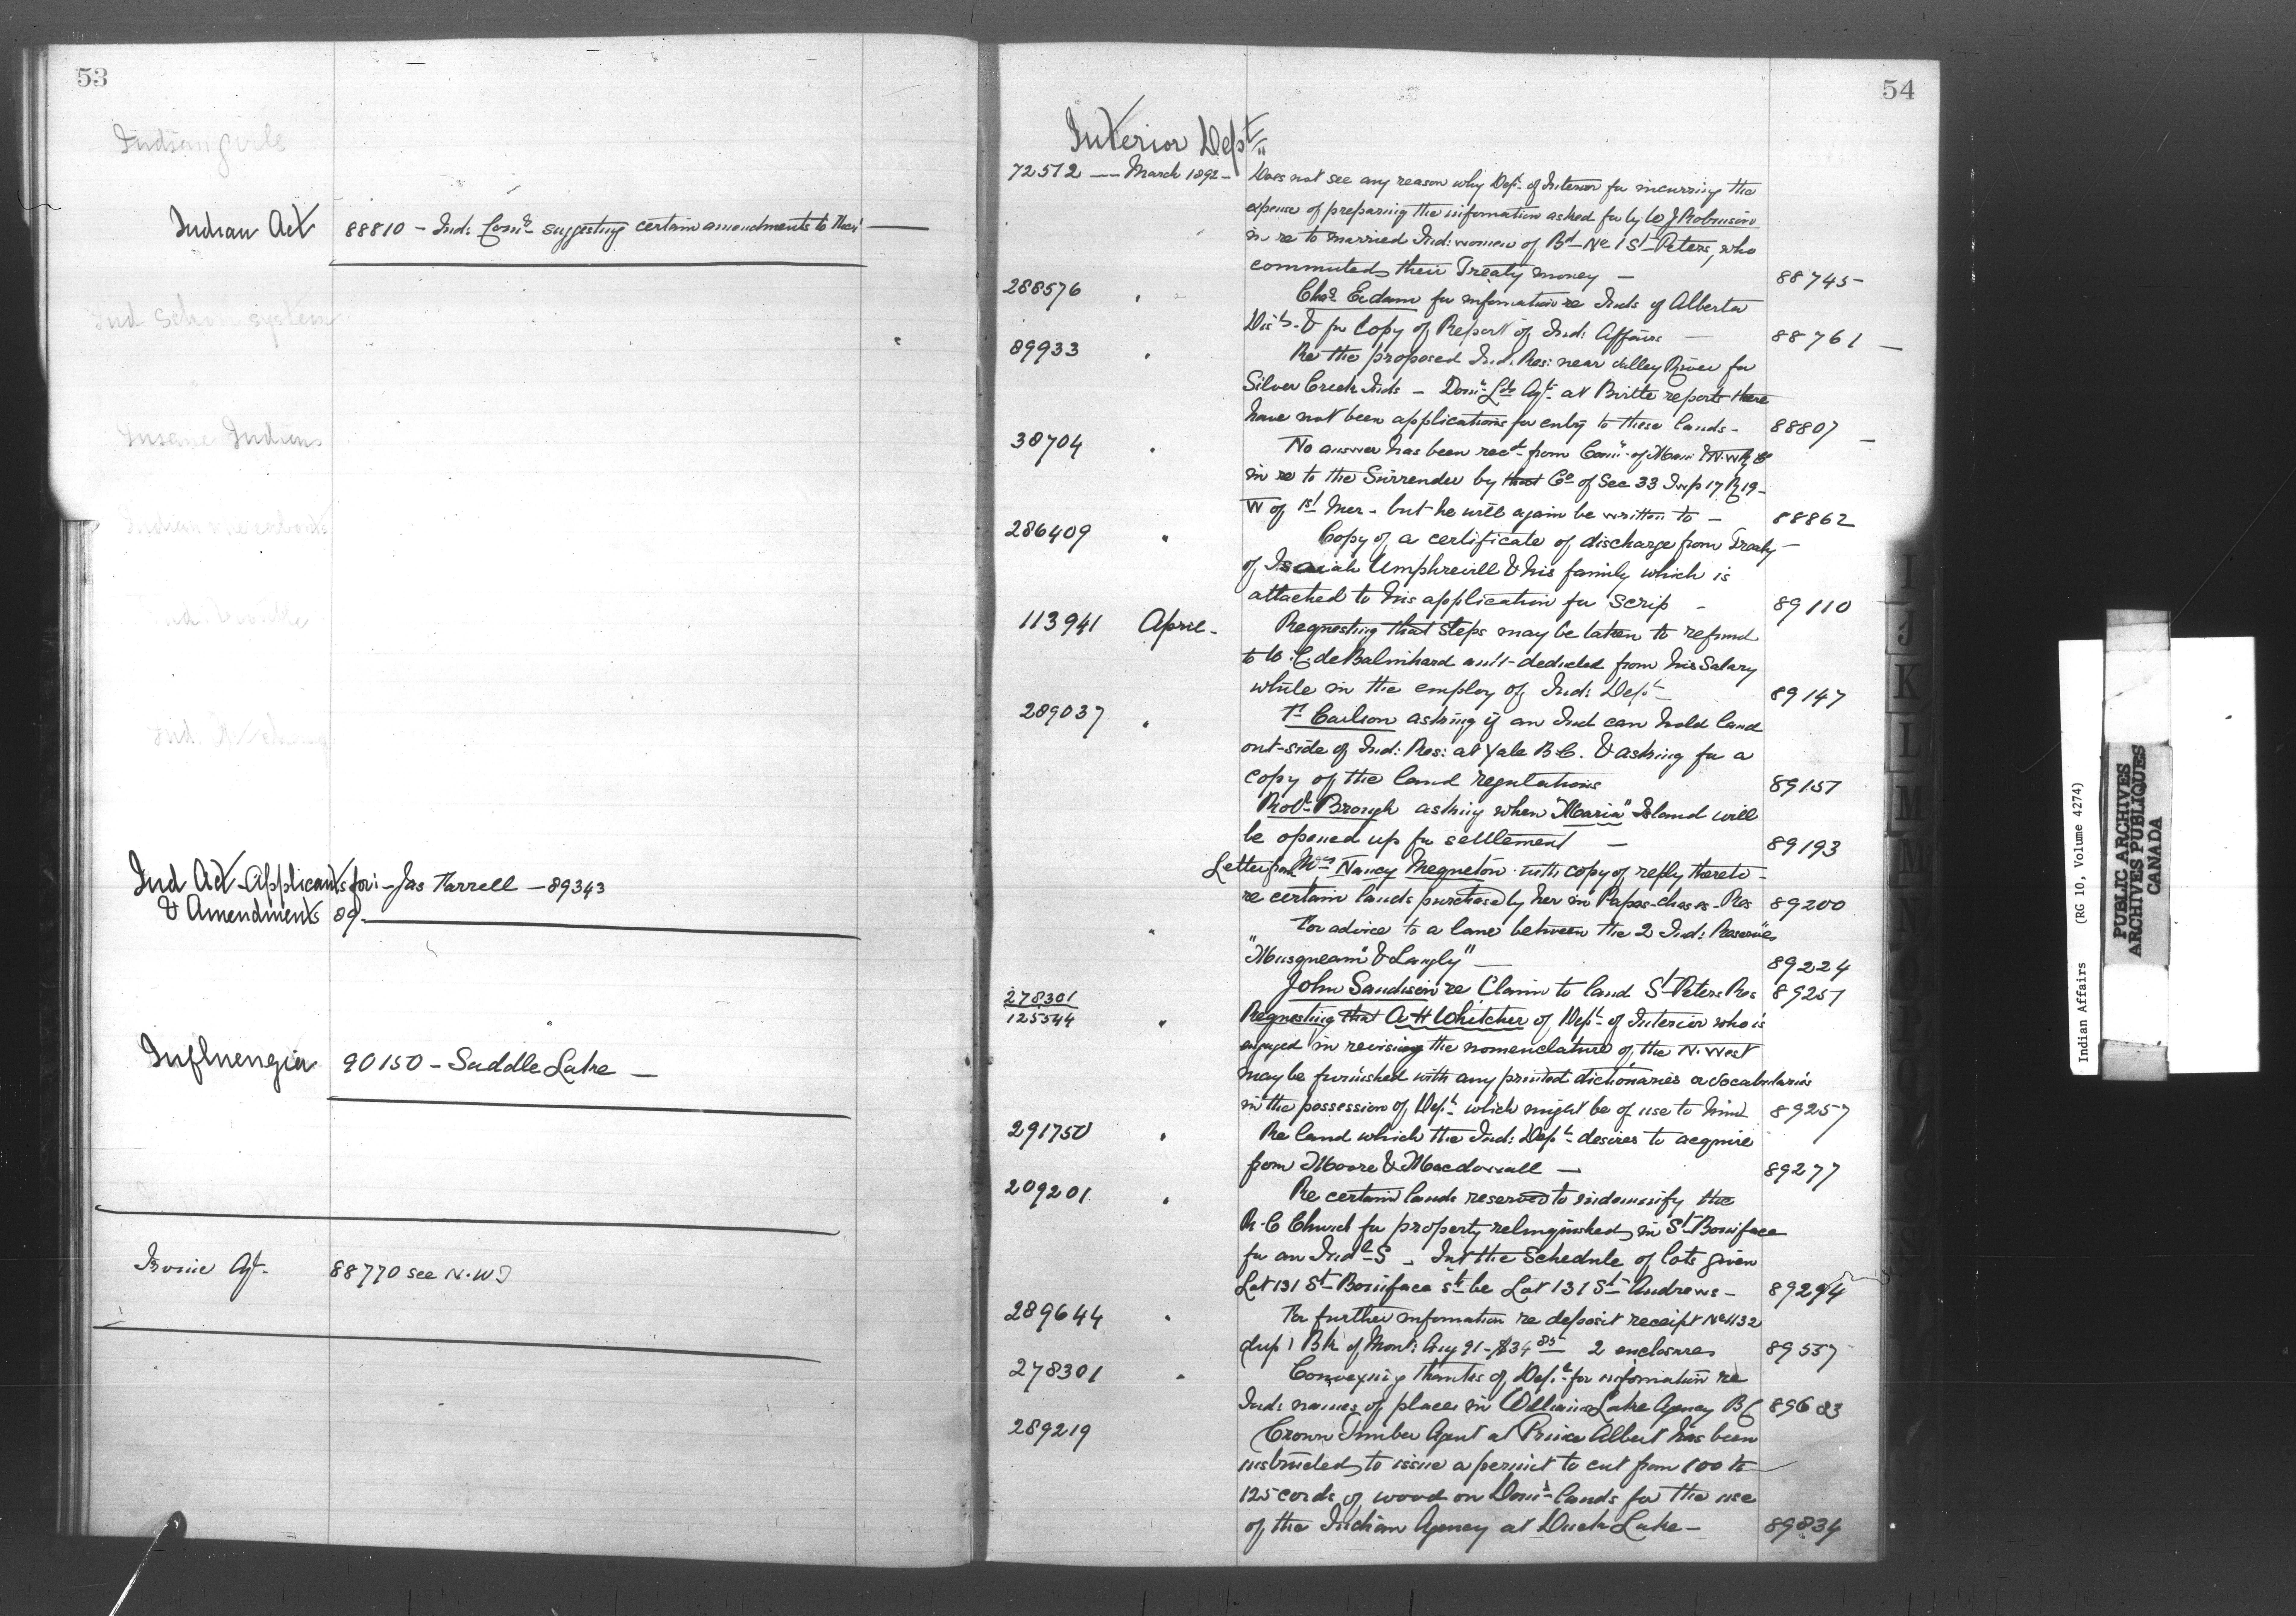 53
Indian girls
Indian Act 88810 - Ind: Comr suggesting certain amendments to the
Ind School system
Insane Indians
Ind Act - Applicants for: - Jas Farrell - 89343
& Amendments 89
Influenza 90150 - Saddle Lake -
Irvine Agt. 88770 see N.W.T
54
Interior Dept.
72512 - March 1892 - Does not see any reason why Dept. of Interior for incurring the
expense of preparing the information asked for by W J Robinson
in re to married Ind: women of Bd No 1 St Peters, who
commuted their Treaty money - 88745-
288576 " Chas. Eedam for information re Inds of Alberta
Dis. & for Copy of Report of Ind: Affairs - 88761 -
89933 " Re the proposed Ind. Res: near Valley River for
Silver Creek Inds - Domn Lds Agt. at Birtle reports there
have not been applications for entry to these lands - 88807 -
38704 " No answer has been recd from Comr of Man & N.W. Ry Co
in re to the Surrender by that Co of Sec 33 Twp 17 R 19
W of 1st Mer - but he will again be written to - 88862
286409 " Copy of a certificate of discharge from Treaty -
of Isaiah Umphreville & his family which is
attached to his application for Scrip - 89110
113941 April - Requesting that steps may be taken to refund
to W. C. deBalinhard amt deducted from his Salary
while in the employ of Ind: Dept - 89147
289037 " Carlson asking if an Ind can hold land
out-side of Ind: Res: at Yale B.C. & asking for a
copy of the land regulations 89157
Robt Brough asking when "Maria" Island will
be opened up for settlement - 89193
Letter from Mrs Nancy Megneton with copy of reply thereto -
re certain lands purchased by her in Papas-chases-Res 89200
" For advice to a lane between the 2 Ind: Reserves
"Musqueam" & Langly" - 89224
John Sandison re Claim to land St Peters Res 89251
278301
125544 " Requesting that A H Whitcher of Dept of Interior who is
engaged in revising the nomenclature of the N. West
may be furnished with any printed dictionaries or vocabularies
in the possession of Dept. which might be of use to him 89257
291750 " Re land which the Ind: Dept. desires to acquire
from Moore & Macdowall - 89277
209201 " Re certain lands reserved to indemnify the
R.C Church for property relinquished in St Boniface
for an Indl S. In the Schedule of lots given
Lot 131 St Boniface sh be Lot 131 St Andrews - 89294
289644 " For further information re deposit receipt No 1132
dup 1 Bk of Mont: Aug 91 - $34 85 2 enclosures 89557
278301 " Conveying thanks of Dept. for information re
Ind: names of places in Williams Lake Agency BC 89683
289219 Crown Timber Agent at Prince Albert has been
instructed to issue a permit to cut from 100 to
125 cords of wood on Domn lands for the use
of the Indian Agency at Duck Lake - 89834
I
J
K
L
M
Indian Affairs (RG 10, Volume 4274)
PUBLIC ARCHIVES
ARCHIVES PUBLIQUES
CANADA